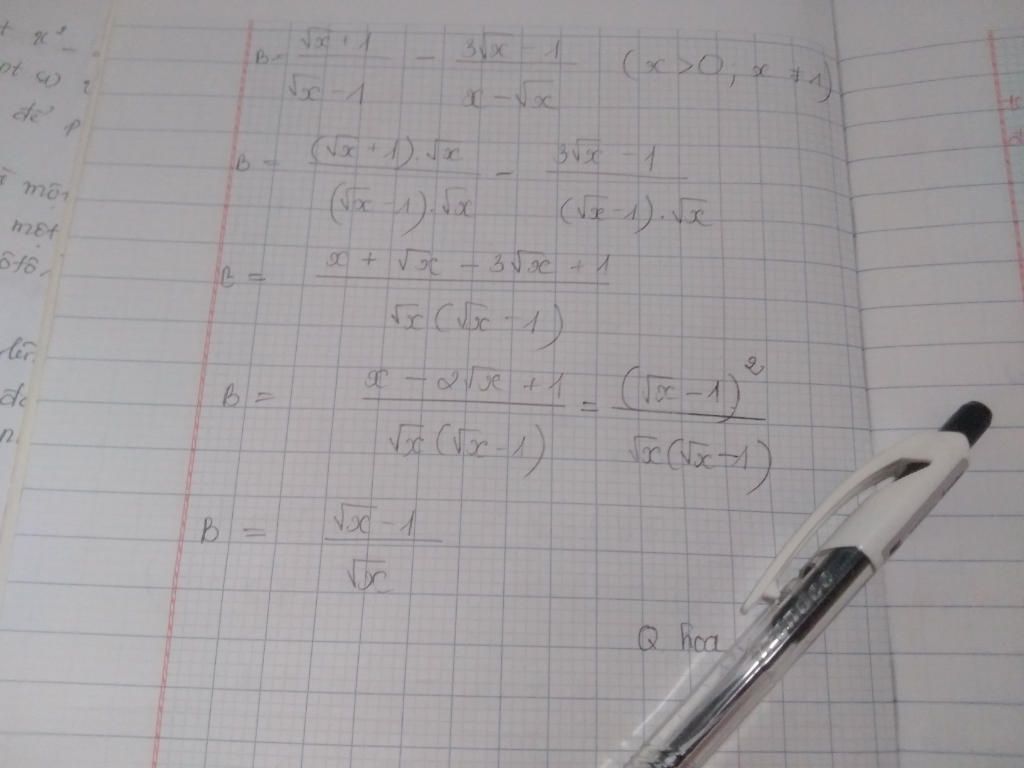 B = \frac{\sqrt{x}+1}{\sqrt{x}-1} - \frac{3\sqrt{x}-1}{x-\sqrt{x}} (x>0; x ≠ 1)
B = \frac{(\sqrt{x}+1).\sqrt{x}}{(\sqrt{x}-1).\sqrt{x}} - \frac{3\sqrt{x}-1}{(\sqrt{x}-1).\sqrt{x}}
B = \frac{x+\sqrt{x}-3\sqrt{x}+1}{\sqrt{x}(\sqrt{x}-1)}
B = \frac{x-2\sqrt{x}+1}{\sqrt{x}(\sqrt{x}-1)} = \frac{(\sqrt{x}-1)^2}{\sqrt{x}(\sqrt{x}-1)}
B = \frac{\sqrt{x}-1}{\sqrt{x}}
Q hoa